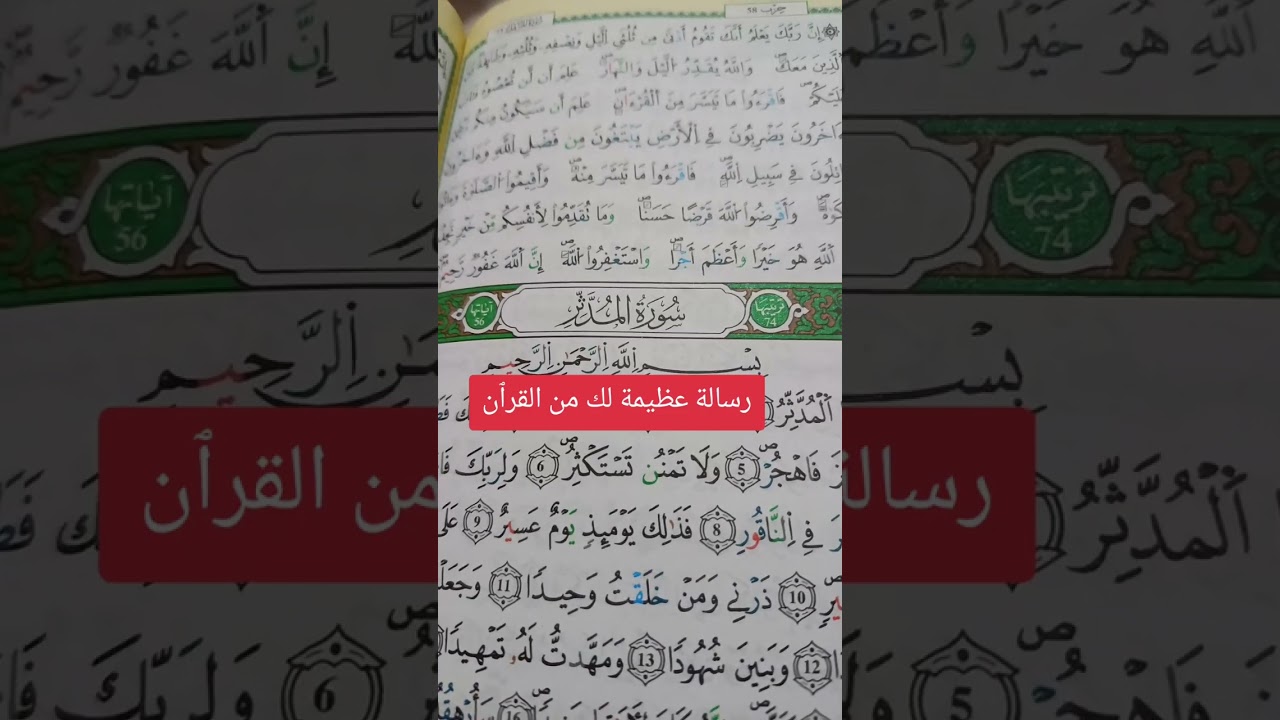 حزب 58
إِنَّ رَبَّكَ يَعْلَمُ أَنَّكَ تَقُومُ أَدْنَىٰ مِن ثُلُثَيِ اِلَّيْلِ وَنِصْفِهِ وَثُلُثِهِ
وَاللَّهُ يُقَدِّرُ اُلَّيْلَ وَالنَّهَارَۖ عَلِمَ أَن لَّن تُحْصُوهُ
فَاقْرَءُوا مَا تَيَسَّرَ مِنَ اَلْقُرْءَانِۖ عَلِمَ أَن سَيَكُونُ مِنكُم
يَضْرِبُونَ فِي اِلْأَرْضِ يَبْتَغُونَ مِن فَضْلِ اِللَّهِ
فِي سَبِيلِ اِللَّهِۖ فَاقْرَءُوا مَا تَيَسَّرَ مِنْهُۖ وَأَقِيمُوا اُلصَّلَوٰةَ
وَأَقْرِضُوا اُللَّهَ قَرْضًا حَسَنًاۖ وَمَا تُقَدِّمُوا لِأَنفُسِكُم مِّنْ خَيْرٍ
اَللَّهِ هُوَ خَيْرًا وَأَعْظَمَ أَجْرًاۖ وَاسْتَغْفِرُوا اُللَّهَۖ إِنَّ اَللَّهَ غَفُورٌ رَّحِيمٌ
ترتيبها 74 سُورَةُ المُدَّثِّرِ آياتها 56
بِسْمِ اِللَّهِ اِلرَّحْمَٰنِ اِلرَّحِيمِ
رسالة عظيمة لك من القرآن
اَلْمُدَّثِّرُ
فَاهْجُرْۖ 5 وَلَا تَمْنُن تَسْتَكْثِرُۖ 6 وَلِرَبِّكَ
فِي اِلنَّاقُورِ 8 فَذَٰلِكَ يَوْمَئِذٍ يَوْمٌ عَسِيرٌ 9
10 ذَرْنِي وَمَنْ خَلَقْتُ وَحِيدًا 11
12 وَبَنِينَ شُهُودًا 13 وَمَهَّدتُّ لَهُ تَمْهِيدًا